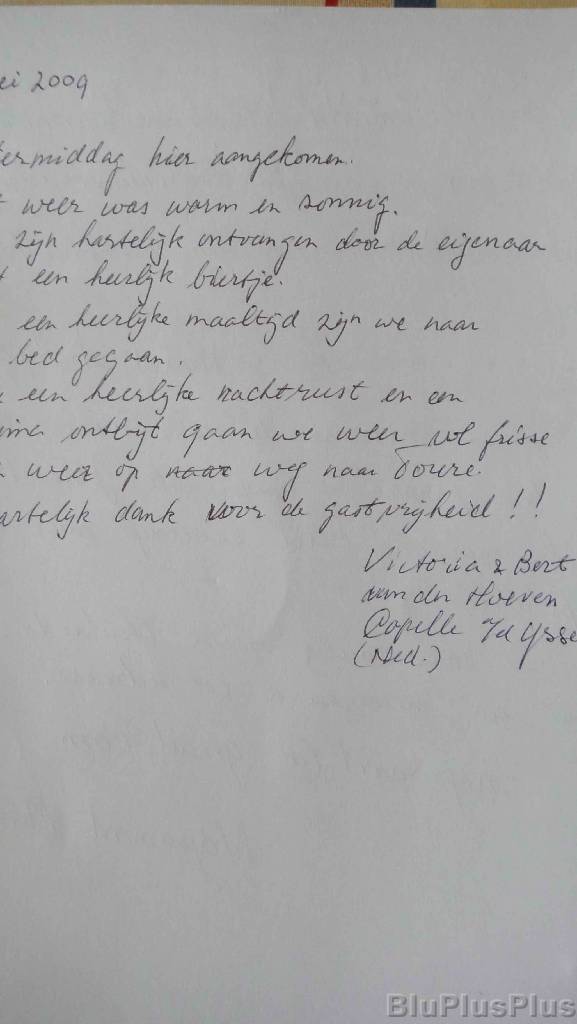 ei 2009
ermiddag hier aangekomen.
t weer was warm en sonnig.
zijn hartelijk ontvangen door de eigenaar
t een heerlijk biertje.
een heerlijke maaltijd zijn we naar
bed gegaan.
een heerlijke nachtrust en een
ima ontbijt gaan we weer vol frisse
weer op naar weg naar
artelijk dank voor de gastvrijheid!!
Victoria & Bert
van der Hoeven
Capelle a/d Ysse
(Ned.)
BluPlusPlus